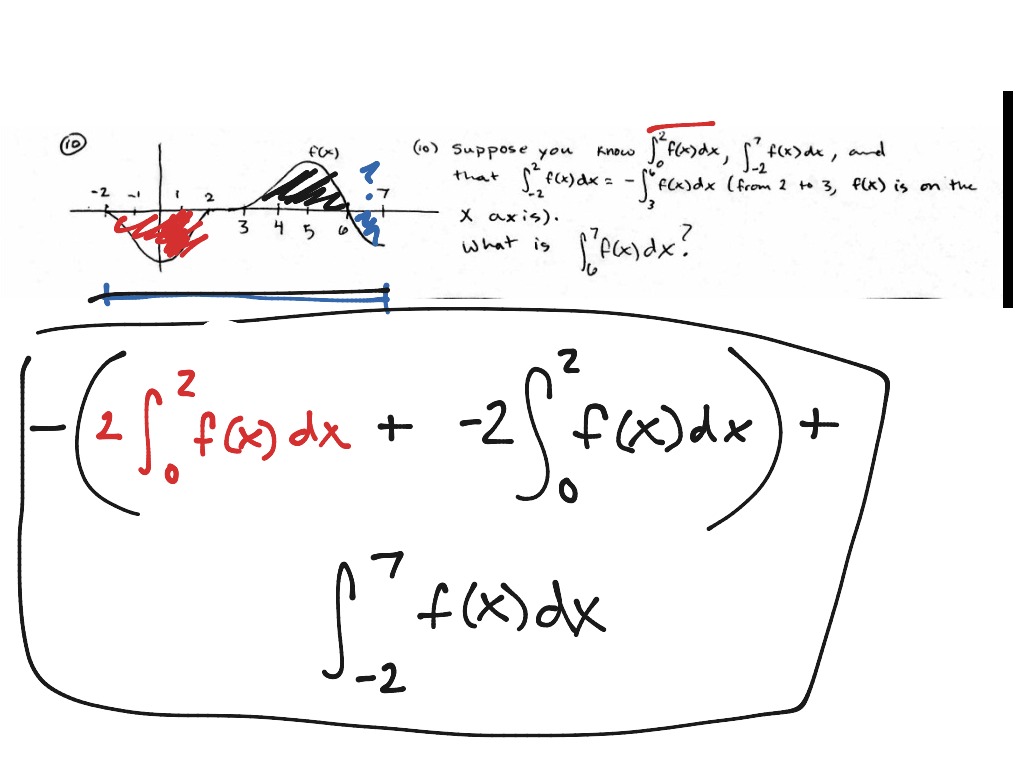 (10)
f(x)
?
-2 -1 1 2 7
3 4 5 6
(10) Suppose you know ∫₀² f(x)dx, ∫₋₂⁷ f(x)dx, and
that ∫₋₂² f(x)dx = -∫₃⁶ f(x)dx (from 2 to 3, f(x) is on the
X axis).
What is ∫₆⁷ f(x)dx?
-(2∫₀² f(x)dx + -2∫₀² f(x)dx) +
∫₋₂⁷ f(x)dx